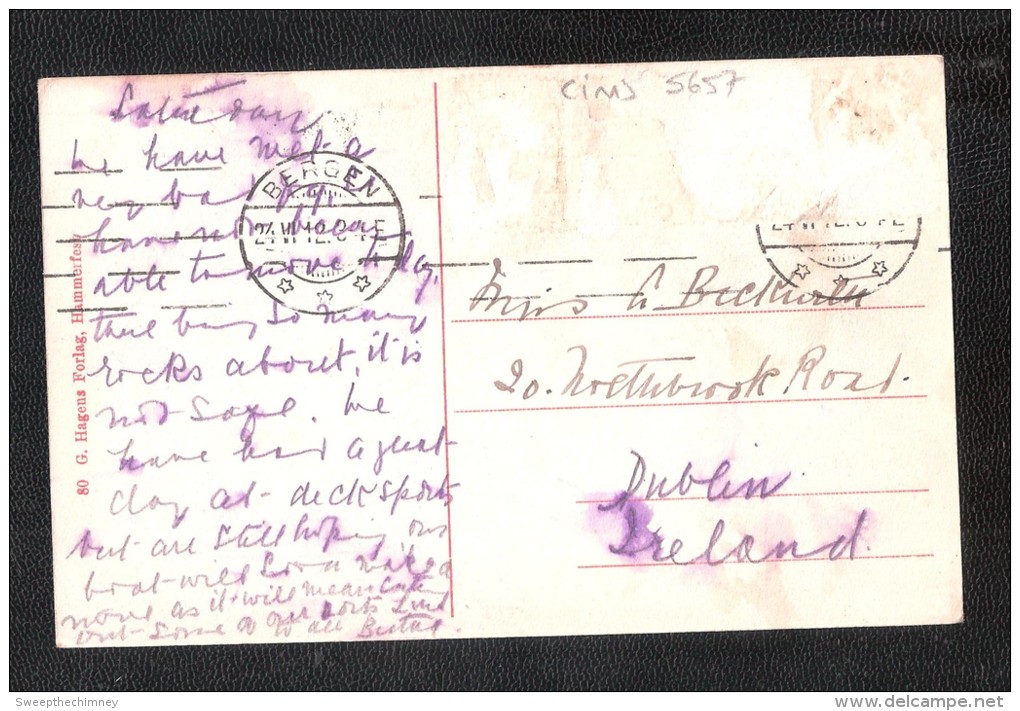 CIMS 5657
Saturday
We have met a
very bad fog &
have not been
able to move to day,
there being so many
rocks about, it is
not safe. We
have had a great
day at deck sports
but are still hoping our
boat will soon make a
move as it will mean cutting
out some of our ports
to all
BERGEN
24 VI 12. 8-9 E
80 G. Hagens Forlag, Hammerfest
Miss Beckwith
20. Northbrook Road.
Dublin
Ireland.
Sweepthechimney
www.delcampe.net